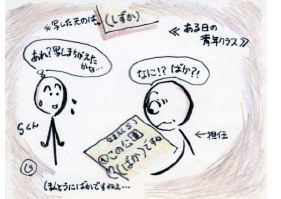 ※写した元のは、(しずか)
≪ある日の
青年クラス≫
あれ?写しまちがえた
かな…
なに!?ばか?!
Sくん
←担任
④この公園
(ばか)ですね
ほんとうにばかですねぇ…